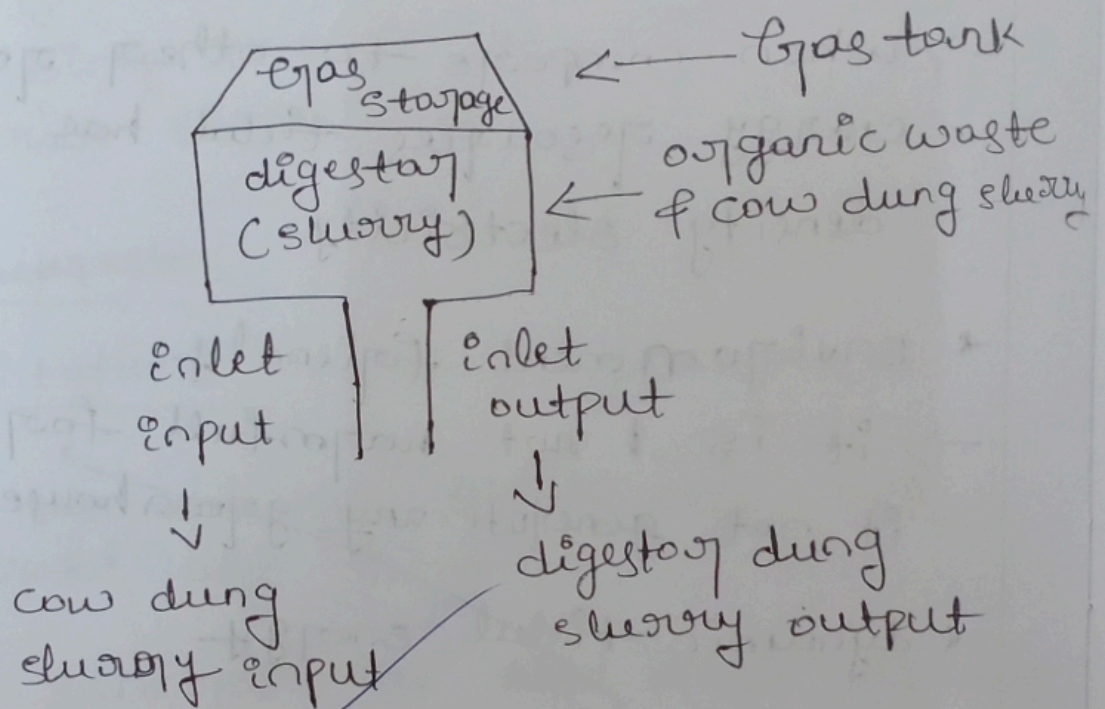 Gas
storage
← Gas tank
digestor
(slurry)
← organic waste
& cow dung slurry
inlet
input
inlet
output
↓
cow dung
slurry input
↓
digestor dung
slurry output